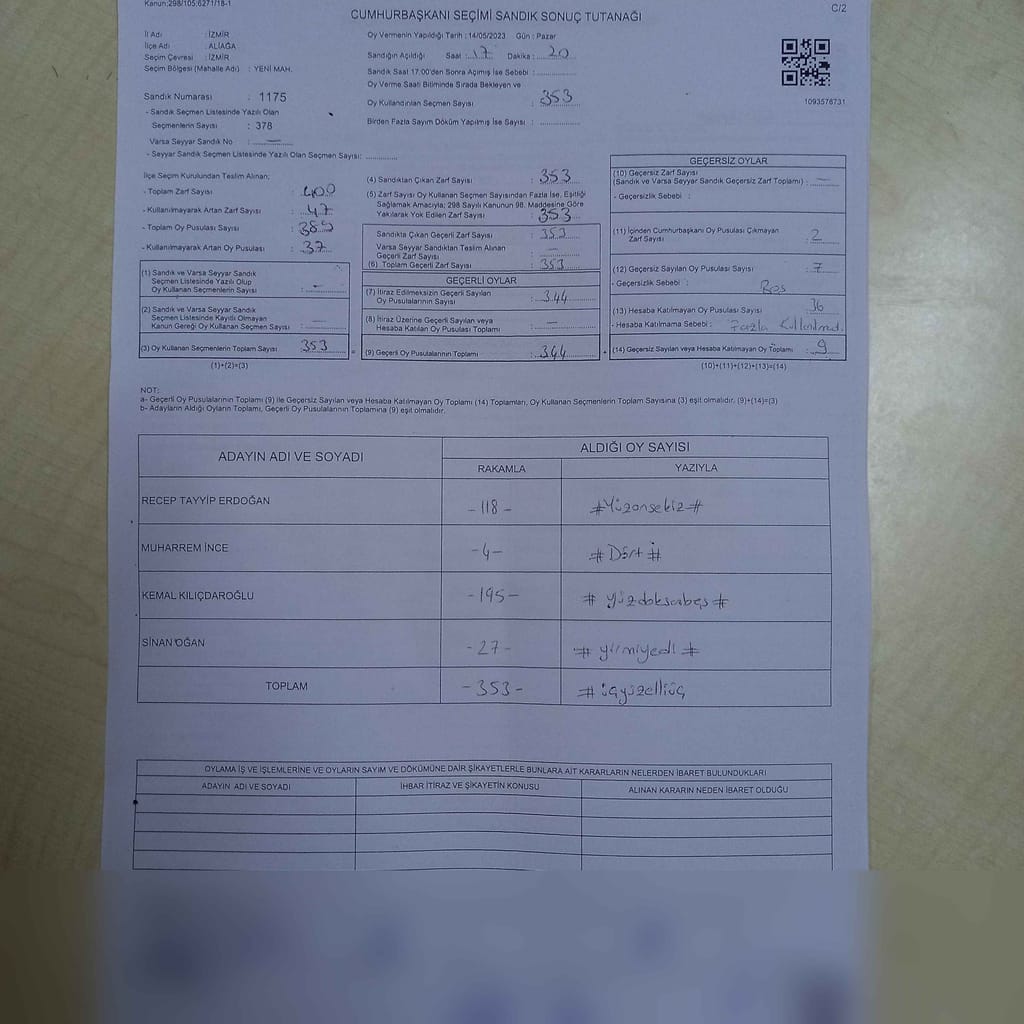 Kanun:298/105;6271/18-1
C/2
CUMHURBAŞKANI SEÇİMİ SANDIK SONUÇ TUTANAĞI
İl Adı : İZMİR
İlçe Adı : ALİAĞA
Seçim Çevresi : İZMİR
Seçim Bölgesi (Mahalle Adı) : YENİ MAH.
Sandık Numarası : 1175
- Sandık Seçmen Listesinde Yazılı Olan
Seçmenlerin Sayısı : 378
Varsa Seyyar Sandık No : —
- Seyyar Sandık Seçmen Listesinde Yazılı Olan Seçmen Sayısı: ............
Oy Vermenin Yapıldığı Tarih : 14/05/2023 Gün : Pazar
Sandığın Açıldığı Saat : 17 Dakika : 20
Sandık Saat 17:00'den Sonra Açımış İse Sebebi : ............
Oy Verme Saati Bitiminde Sırada Bekleyen ve
Oy Kullandırılan Seçmen Sayısı : 353
Birden Fazla Sayım Döküm Yapılmış İse Sayısı : ............
1093576731
İlçe Seçim Kurulundan Teslim Alınan;
- Toplam Zarf Sayısı : 400
- Kullanılmayarak Artan Zarf Sayısı : 47
- Toplam Oy Pusulası Sayısı : 389
- Kullanılmayarak Artan Oy Pusulası : 37
(1) Sandık ve Varsa Seyyar Sandık
Seçmen Listesinde Yazılı Olup
Oy Kullanan Seçmenlerin Sayısı : —
(2) Sandık ve Varsa Seyyar Sandık
Seçmen Listesinde Kayıtlı Olmayan
Kanun Gereği Oy Kullanan Seçmen Sayısı : —
(3) Oy Kullanan Seçmenlerin Toplam Sayısı 353
(1)+(2)=(3)
(4) Sandıktan Çıkan Zarf Sayısı : 353
(5) Zarf Sayısı Oy Kullanan Seçmen Sayısından Fazla İse, Eşitliği
Sağlamak Amacıyla; 298 Sayılı Kanunun 98. Maddesine Göre
Yakılarak Yok Edilen Zarf Sayısı : 353
Sandıkta Çıkan Geçerli Zarf Sayısı : 353
Varsa Seyyar Sandıktan Teslim Alınan
Geçerli Zarf Sayısı : —
(6) Toplam Geçerli Zarf Sayısı : 353
GEÇERLİ OYLAR
(7) İtiraz Edilmeksizin Geçerli Sayılan
Oy Pusulalarının Sayısı : 344
(8) İtiraz Üzerine Geçerli Sayılan veya
Hesaba Katılan Oy Pusulası Toplamı : —
(9) Geçerli Oy Pusulalarının Toplamı : 344
GEÇERSİZ OYLAR
(10) Geçersiz Zarf Sayısı
(Sandık ve Varsa Seyyar Sandık Geçersiz Zarf Toplamı) : —
- Geçersizlik Sebebi :
(11) İçinden Cumhurbaşkanı Oy Pusulası Çıkmayan
Zarf Sayısı : 2
(12) Geçersiz Sayılan Oy Pusulası Sayısı : 7
- Geçersizlik Sebebi : Boş
(13) Hesaba Katılmayan Oy Pusulası Sayısı : 36
- Hesaba Katılmama Sebebi : Fazla Kullanılmd.
(14) Geçersiz Sayılan veya Hesaba Katılmayan Oy Toplamı : 9
(10)+(11)+(12)+(13)=(14)
NOT:
a- Geçerli Oy Pusulalarının Toplamı (9) ile Geçersiz Sayılan veya Hesaba Katılmayan Oy Toplamı (14) Toplamları, Oy Kullanan Seçmenlerin Toplam Sayısına (3) eşit olmalıdır. (9)+(14)=(3)
b- Adayların Aldığı Oyların Toplamı, Geçerli Oy Pusulalarının Toplamına (9) eşit olmalıdır.
ADAYIN ADI VE SOYADI
ALDIĞI OY SAYISI
RAKAMLA YAZIYLA
RECEP TAYYİP ERDOĞAN -118- #Yüzonsekiz#
MUHARREM İNCE -4- #Dört#
KEMAL KILIÇDAROĞLU -195- #yüzdoksanbeş#
SİNAN OĞAN -27- #yirmiyedi#
TOPLAM -353- #üçyüzelliüç
OYLAMA İŞ VE İŞLEMLERİNE VE OYLARIN SAYIM VE DÖKÜMÜNE DAİR ŞİKAYETLERLE BUNLARA AİT KARARLARIN NELERDEN İBARET BULUNDUKLARI
ADAYIN ADI VE SOYADI İHBAR İTİRAZ VE ŞİKAYETİN KONUSU ALINAN KARARIN NEDEN İBARET OLDUĞU